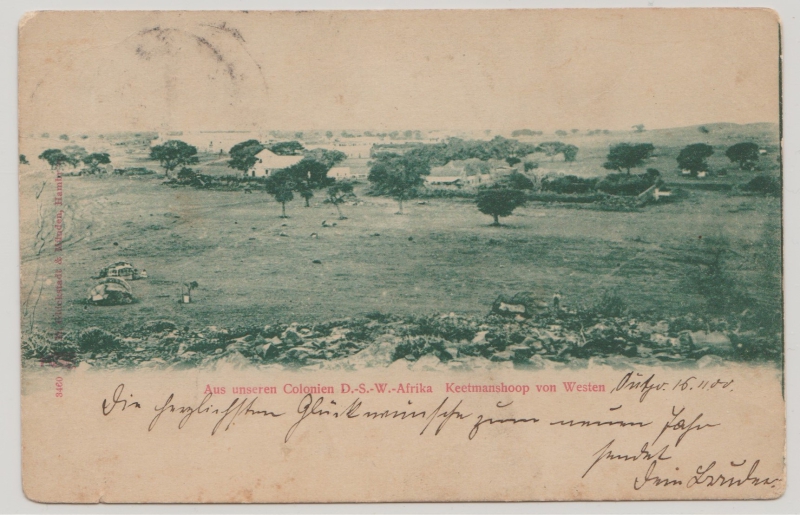 Aus unseren Colonien D.-S.-W.-Afrika Keetmanshoop von Westen
16. 11 00.
Die herzlichsten Glückwünsche zum neuen Jahr
sendet
Dein Bruder.
3460